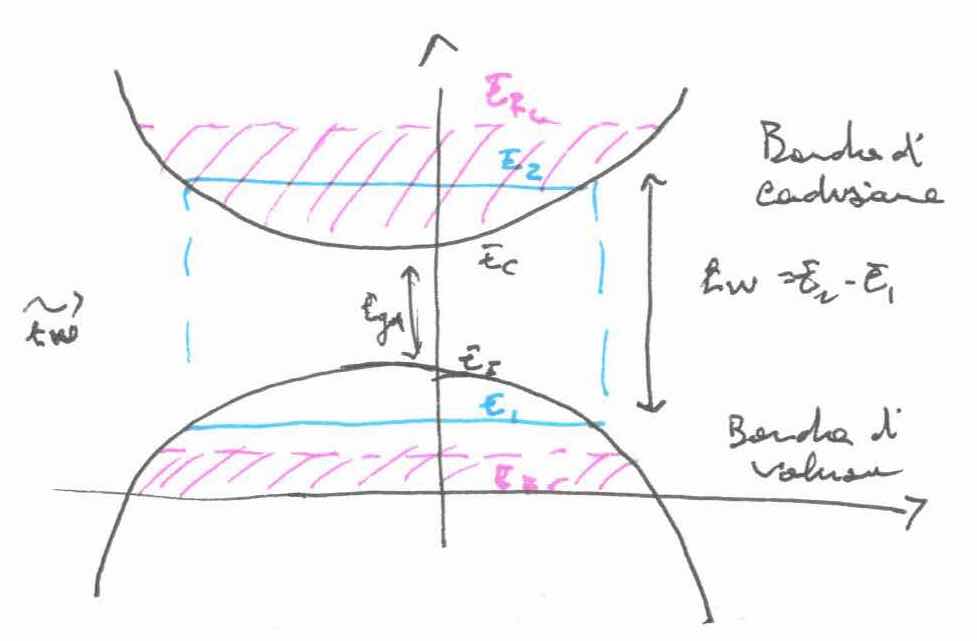 E_Fc
E_2
Banda di
Conduzione
E_c
ħω = E_2 - E_1
E_gap
ħω
E_1
Banda di
valenza